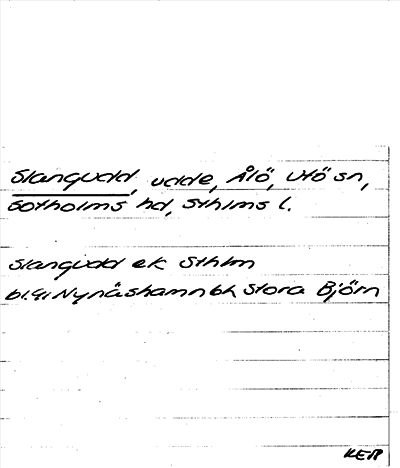 Slangudd, udde, Ålö, Utö sn,
Sotholms hd, Sthlms l.
Slangudd ek Sthlm
bl.41 Nynäshamn bl Stora Björn
KER